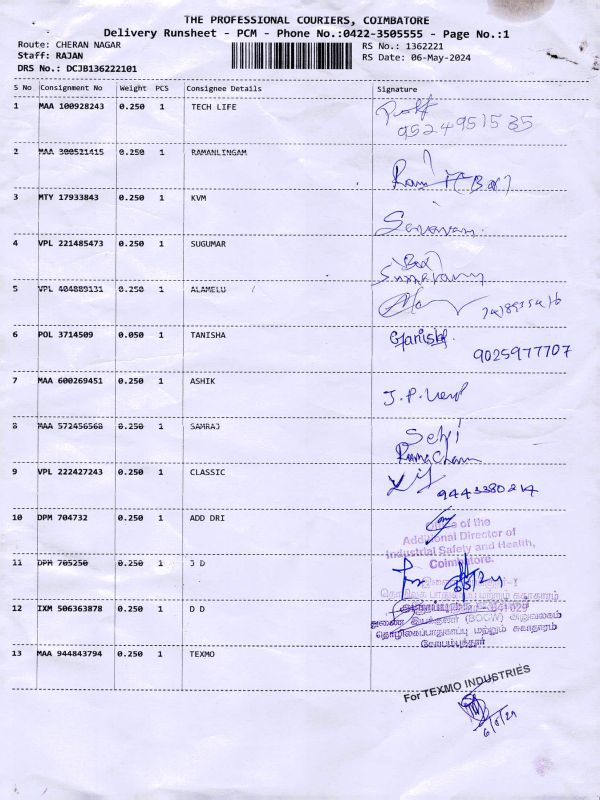 THE PROFESSIONAL COURIERS, COIMBATORE
Delivery Runsheet - PCM - Phone No.:0422-3505555 - Page No.:1
Route: CHERAN NAGAR RS No.: 1362221
Staff: RAJAN RS Date: 06-May-2024
DRS No.: DCJB136222101
S No Consignment No Weight PCS Consignee Details Signature
1 MAA 100928243 0.250 1 TECH LIFE
9524951535
2 MAA 300521415 0.250 1 RAMANLINGAM
3 MTY 17933843 0.250 1 KVM
4 VPL 221485473 0.250 1 SUGUMAR
5 VPL 404889131 0.250 1 ALAMELU
6 POL 3714509 0.050 1 TANISHA
9025977707
7 MAA 600269451 0.250 1 ASHIK
J.P.
8 MAA 572456568 0.250 1 SAMRAJ
Selvi
9 VPL 222427243 0.250 1 CLASSIC
10 DPM 704732 0.250 1 ADD DRI
Office of the
Additional Director of
Industrial Safety and Health,
Coimbatore.
11 DPM 705250 0.250 1 J D
12 IXM 506363878 0.250 1 D D
641 029
துணை இயக்குனர் (BOCW) அலுவலகம்
தொழிலகப்பாதுகாப்பு மற்றும் சுகாதாரம்
கோயம்புத்தூர்
13 MAA 944843794 0.250 1 TEXMO
For TEXMO INDUSTRIES
6/5/24